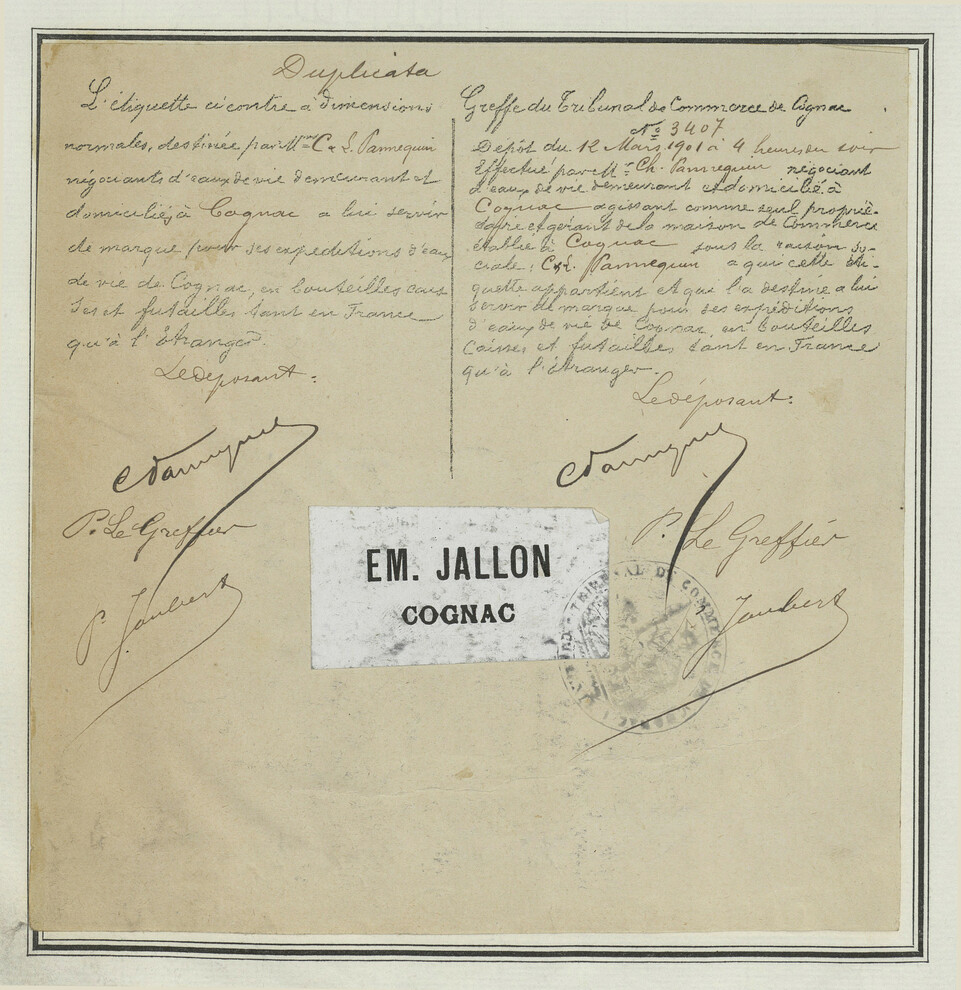 Duplicata
L'étiquette ci contre a dimensions
normales, destinée par Mrs C & L. Pannequin
négociants d'eaux de vie demeurant et
domiciliés à Cognac a lui servir
de marque pour ses expéditions d'eau
de vie de Cognac, en bouteilles cais
ses et futailles tant en France
qu'à l'étranger.
Le déposant:
P. Le Greffier
P. Joubert
Greffe du Tribunal de Commerce de Cognac
No 3407
Dépôt du 12 Mars 1901 à 4 heures du soir
Effectué par Mr Ch. Pannequin négociant
d'eaux de vie demeurant et domicilié à
Cognac agissant comme seul proprié-
taire et gérant de la maison de Commerce
établie à Cognac sous la raison so-
ciale; C & L. Pannequin a qui cette éti-
quette appartient et qui la destine a lui
servir de marque pour ses expéditions
d'eaux de vie de Cognac, en bouteilles
Caisses et futailles tant en France
qu'à l'étranger.
Le déposant:
P. Le Greffier
Joubert
EM. JALLON
COGNAC
TRIBUNAL DE COMMERCE DE COGNAC